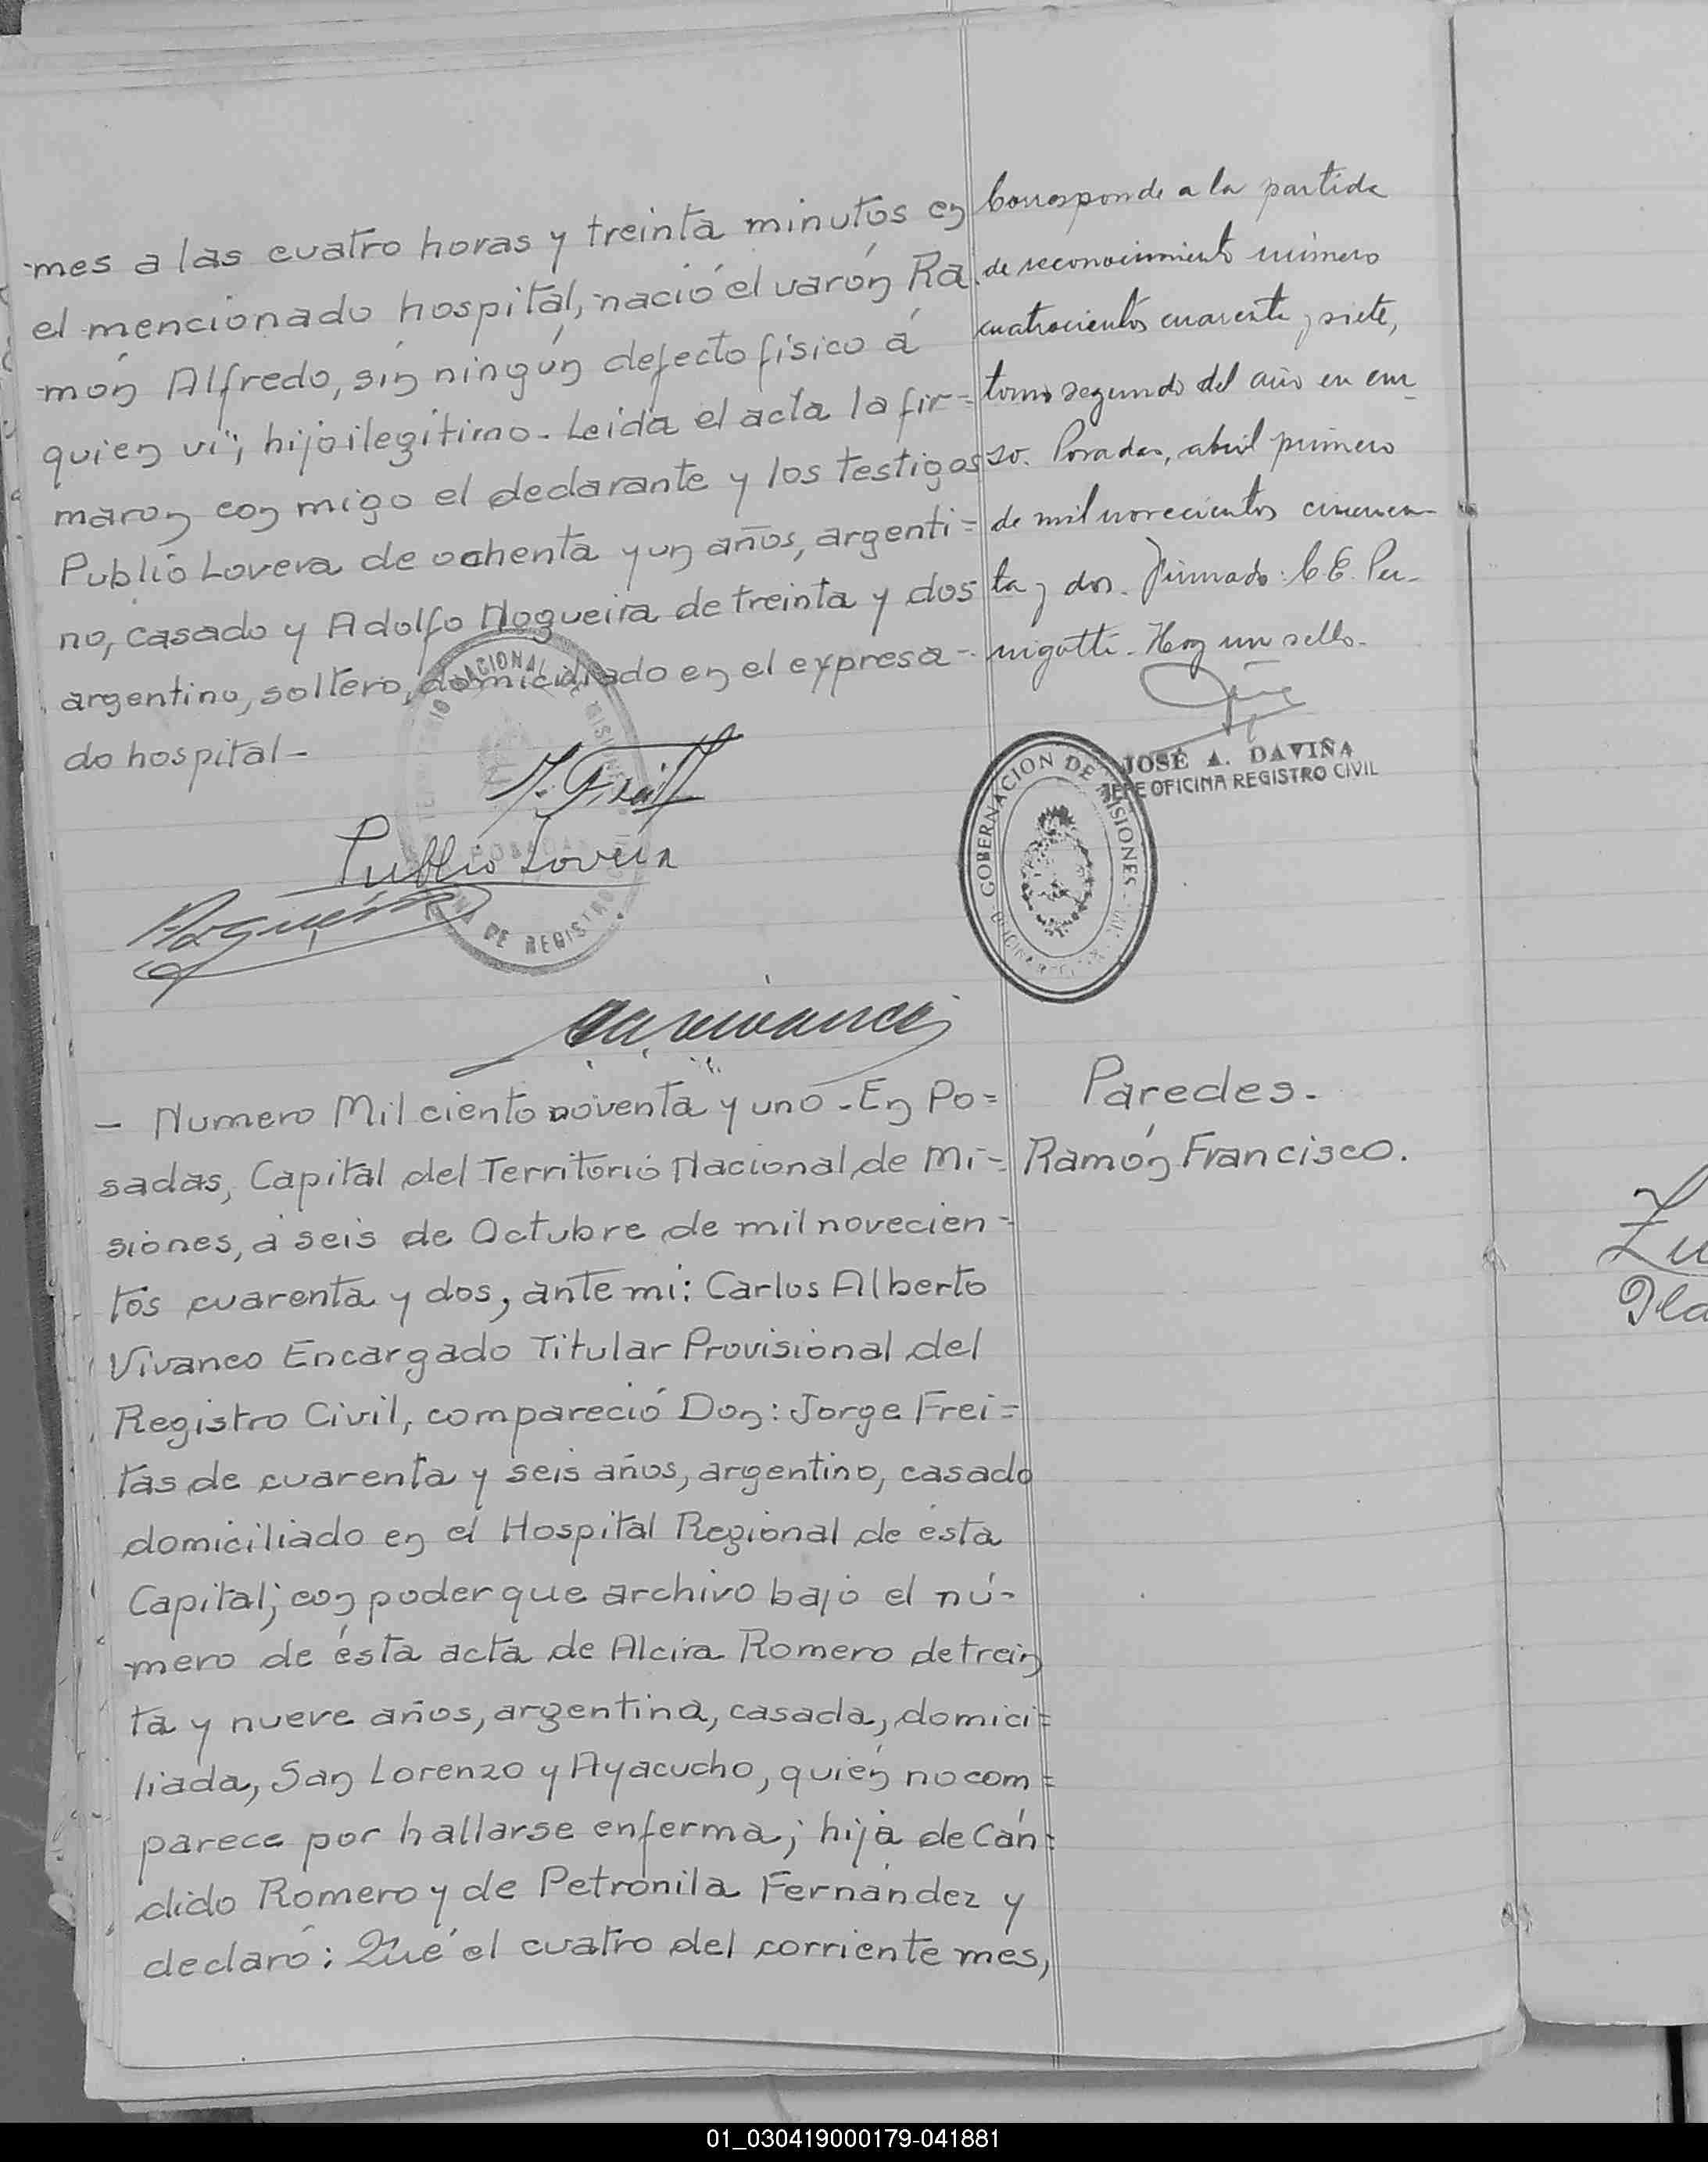 mes a las cuatro horas y treinta minutos en
el mencionado hospital, nació el varón Ra
món Alfredo, sin ningún defecto físico á
quien ví; hijo ilegítimo. Leida el acta la fir=
maron con migo el declarante y los testigos
Publio Lovera de ochenta y un años, argenti=
no, casado y Adolfo Nogueira de treinta y dos
argentino, soltero, domiciliado en el expresa-
do hospital-
J. Freit
Publio Lovera
Nogueira
Corresponde a la partida
de reconocimiento número
cuatrocientos cuarenta y siete,
tomo segundo del año en cur-
so. Posadas, abril primero
de mil novecientos cincuen-
ta y dos. Firmado: C E. Per-
nigotti. Hay un sello.
JOSÉ A. DAVIÑA
JEFE OFICINA REGISTRO CIVIL
GOBERNACION DE MISIONES
NACIONAL DE MISIONES
POSADAS
DE REGISTRO
- Numero Mil ciento noventa y uno. En Po=
sadas, Capital del Territorio Nacional de Mi=
siones, á seis de Octubre de mil novecien=
tos cuarenta y dos, ante mi: Carlos Alberto
Vivanco Encargado Titular Provisional del
Registro Civil, compareció Don: Jorge Frei=
tas de cuarenta y seis años, argentino, casado
domiciliado en el Hospital Regional de ésta
Capital; con poder que archivo bajo el nú-
mero de ésta acta de Alcira Romero de trein
ta y nueve años, argentina, casada, domici=
liada, San Lorenzo y Ayacucho, quién no com=
parece por hallarse enferma; hija de Cán=
dido Romero y de Petronila Fernández y
declaró: Qué el cuatro del corriente mes,
Paredes.
Ramón Francisco.
01_030419000179-041881